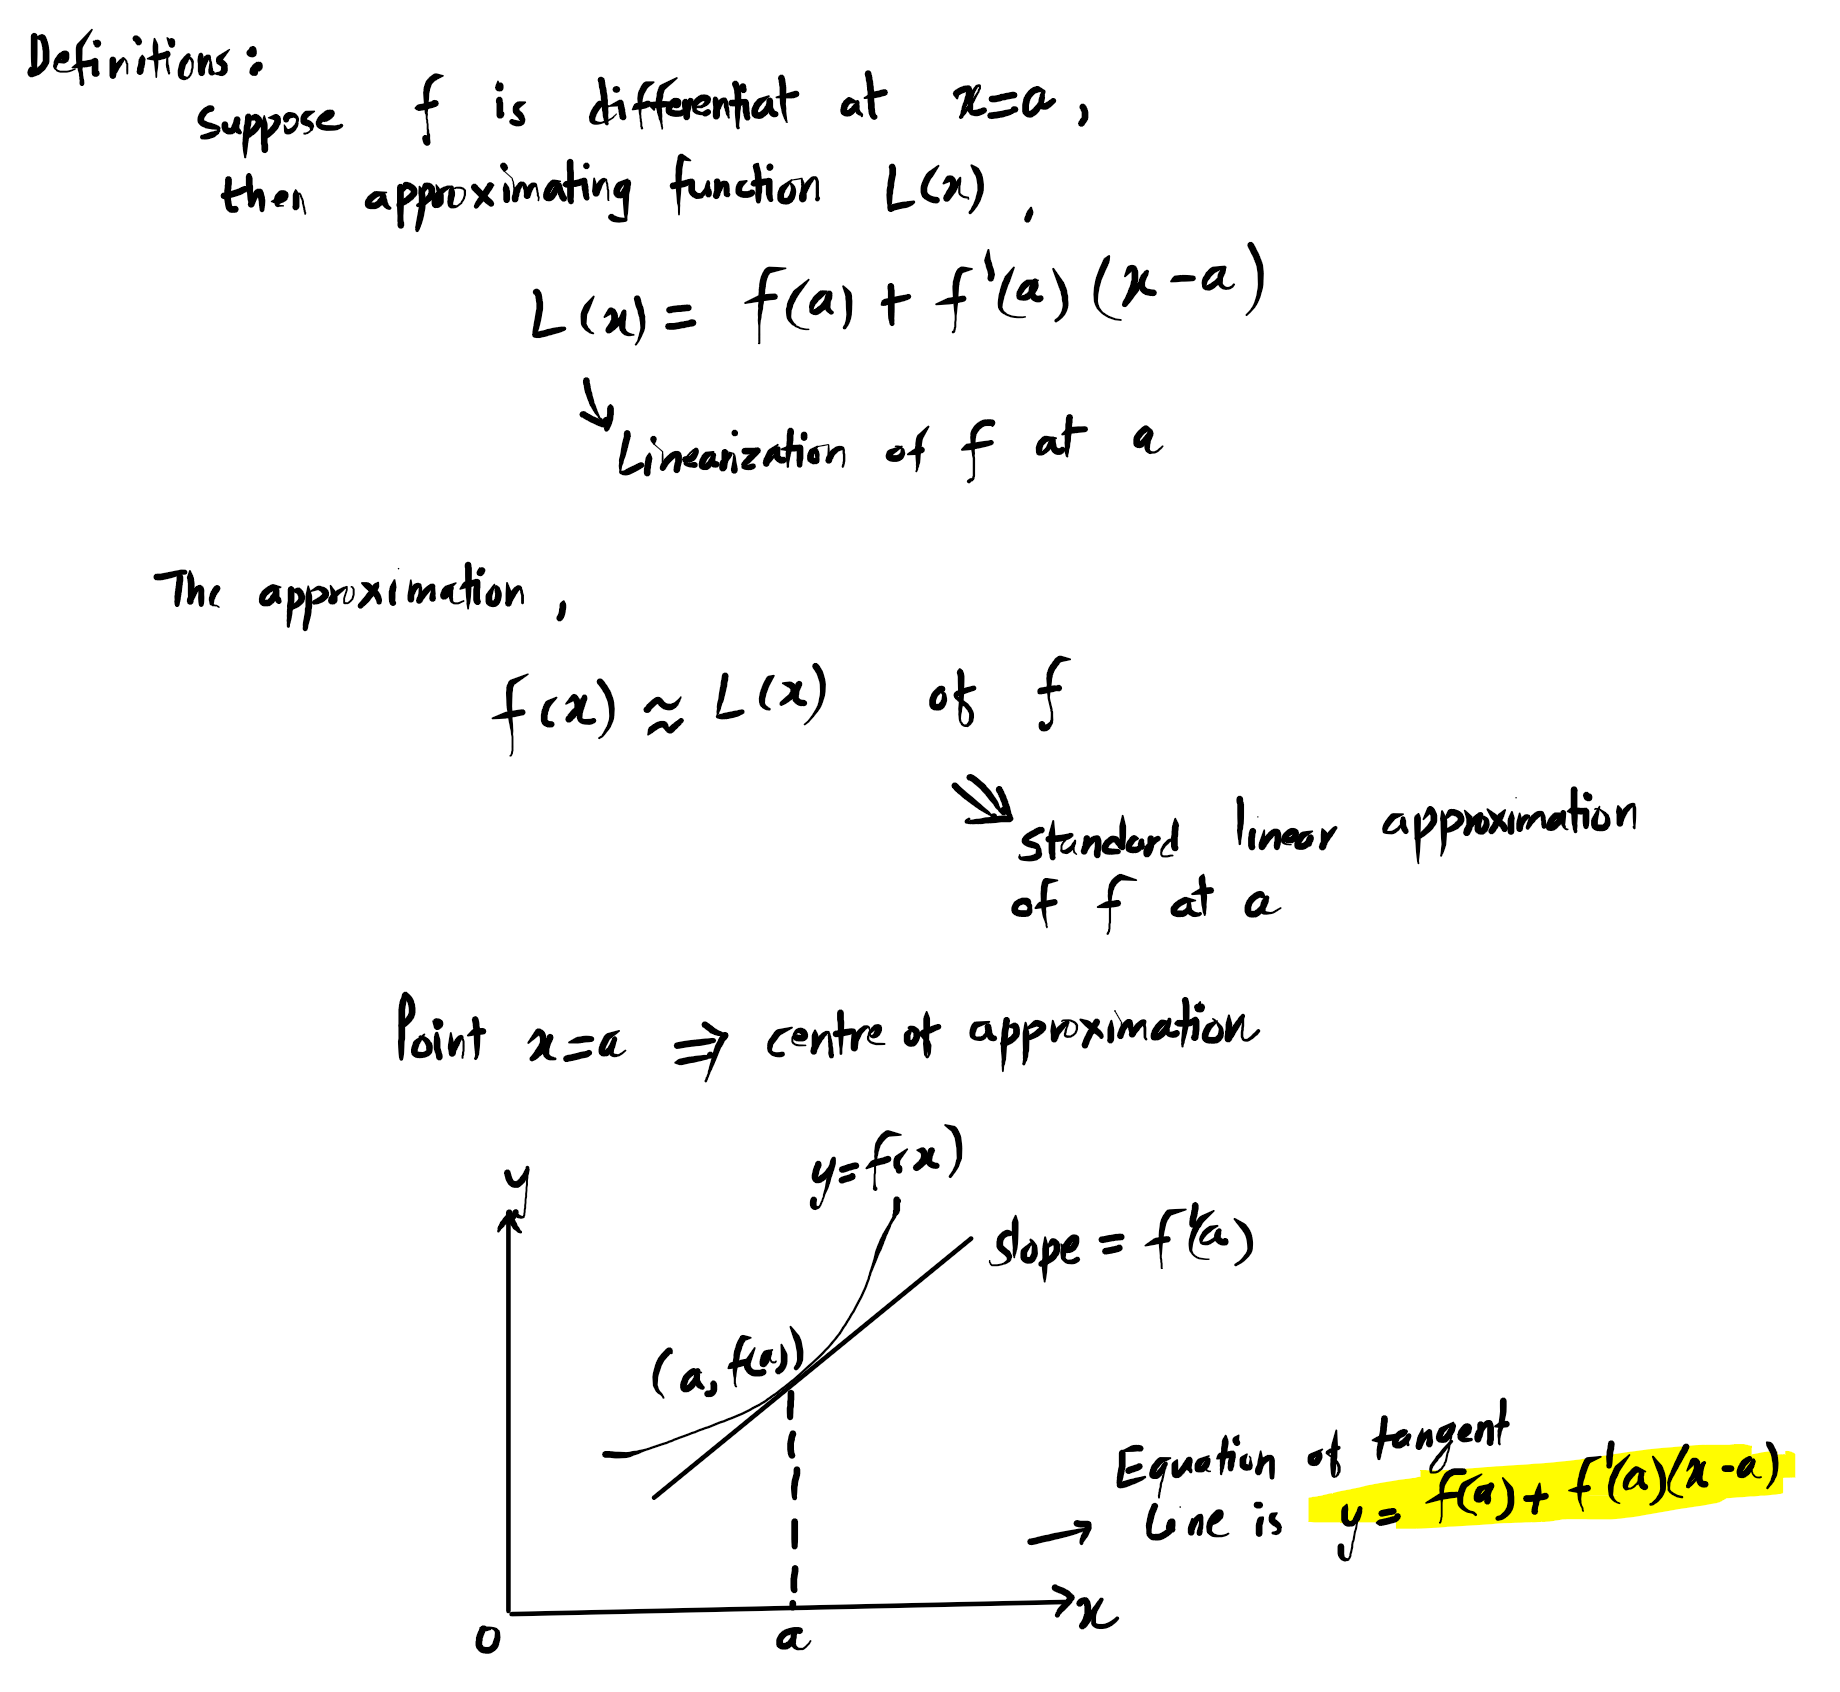 Definitions:
Suppose f is differentiat at x=a,
then approximating function L(x),
L(x) = f(a) + f'(a) (x-a)
↘
Linearization of f at a
The approximation,
f(x) ≈ L(x) of f
⇘
standard linear approximation
of f at a
Point x=a ⇒ centre of approximation
y=f(x)
y
slope = f'(a)
(a, f(a))
Equation of tangent
→ Line is y = f(a) + f'(a)(x-a)
x
0 a